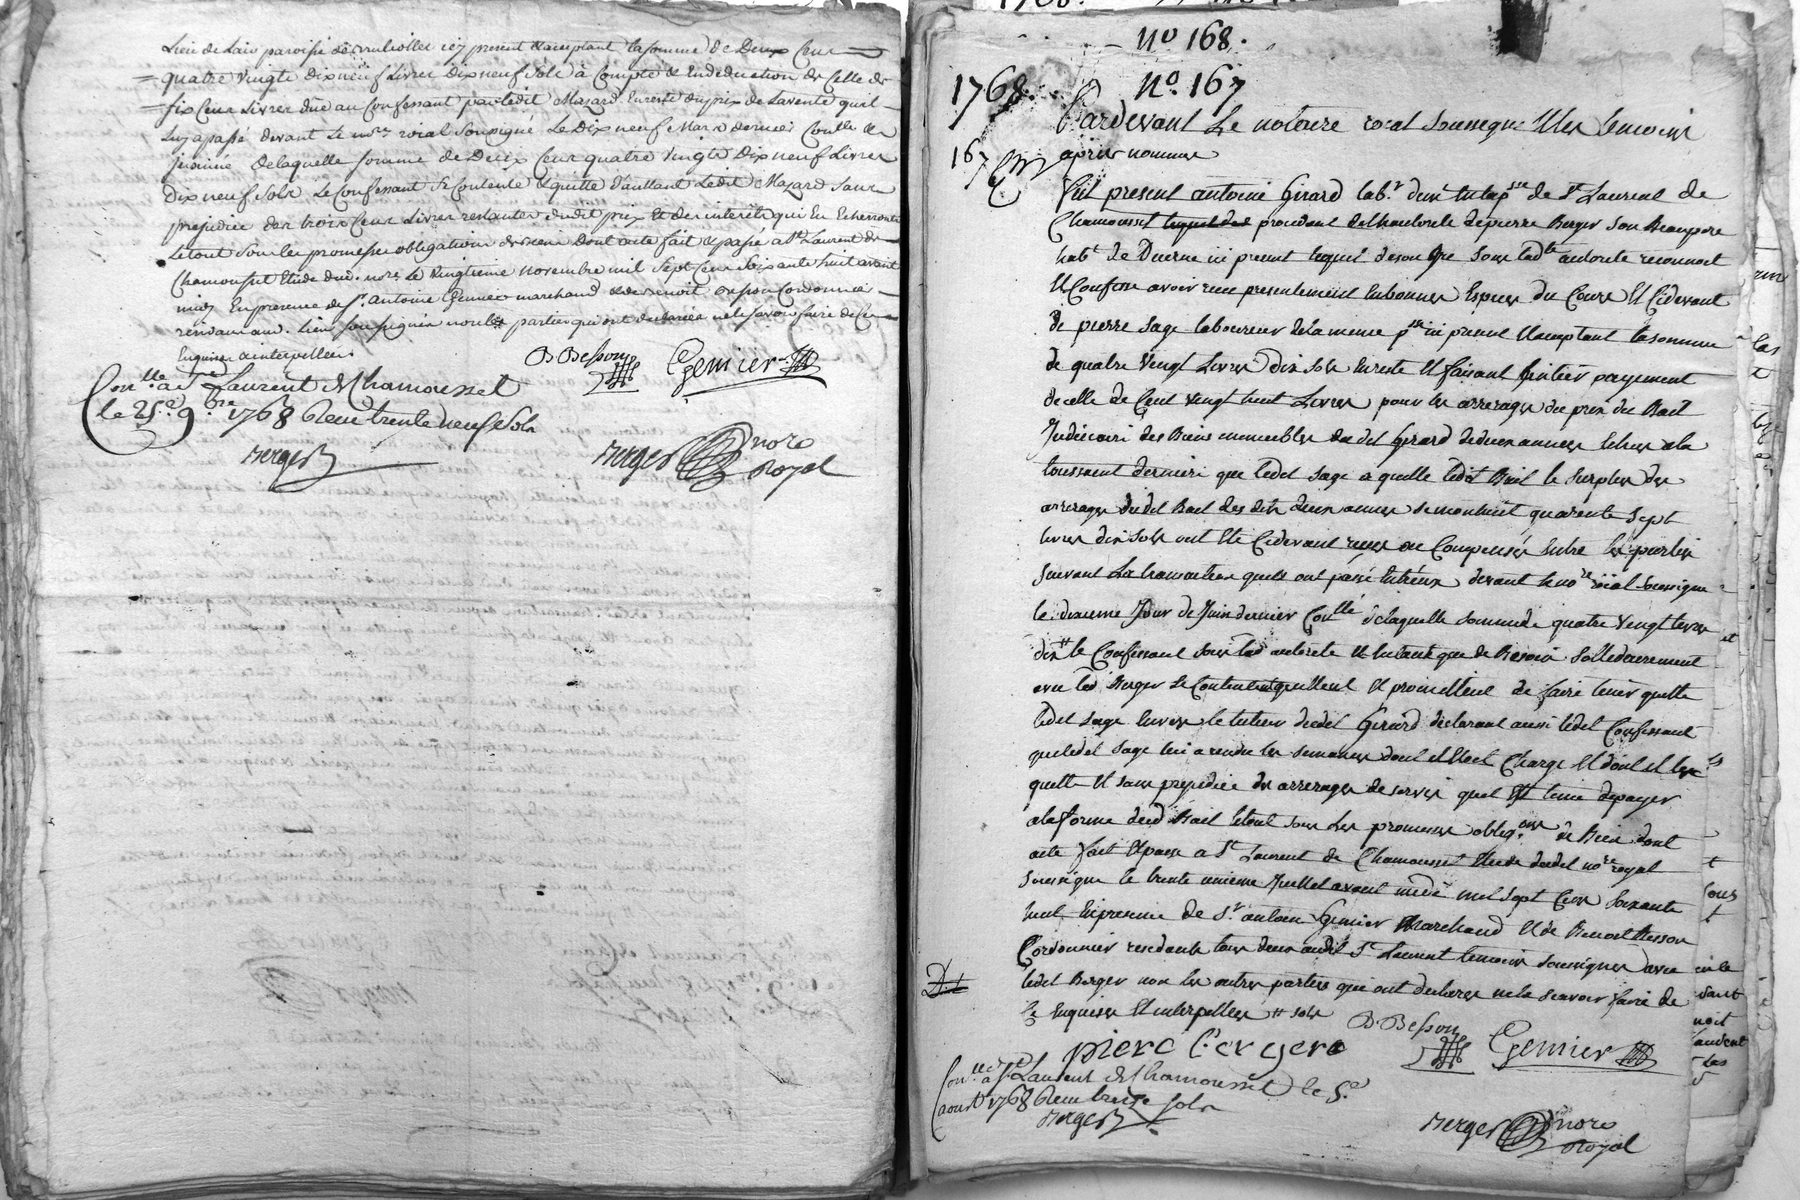 quatre vingts dix neuf Livres dix neuf Sols à Compte & En deduction de Celle de
six Cent Livres düe au Confessant par ledit Mazard En reste du prix de la vente quil
luy a passé devant Le nore roial Soussigné Le Dix neuf Mars dernier Conllé &
de laquelle somme de Deux Cent quatre Vingts Dix neuf Livres
Dix neuf Sols Le Confessant Se Contente & quitte d'autant Ledit Mazard Sans
prejudice des trois Cent Livres restantes dudit prix Et des interêts qui En Echerront
Le tout Sous les promesses obligations de bien Dont acte fait & passé a St Laurent de
Chamousset Etude dud. nore Le Vingtieme novembre mil Sept Cent Soixante huit avant
midy En presence de Sr antoine Gemier marchand & de benoit Besson Cordonnier
Soussignés non les parties qui ont declarées ne le savoir faire de Ce
Enquises & interpellees
B Besson Gemier
Conlle a St Laurent de Chamousset
le 25e 9bre 1768 Recu trente neuf Sols
Berger
Berger nore
Royal
No 168.
1768. No. 167
167
Pardevant Le notaire roial soussigne & Les temoins
apres nommes
Fut present antoine Girard labr de St Laurent de
Chamousset procedant de lhautorite de pierre Berger Son Beaupere
habt de Duerne ici present lequel de son gre Sous ladte autorite reconnoit
Et Confesse avoir recu presentement En bonnes Especes du Cours Et Cidevant
de pierre Sage laboureur de la meme psse ici present & acceptant la somme
de quatre Vingt Livres dix Sols En reste Et faisant Lentier payement
de celle de Cent Vingt huit Livres pour les arrerages du prix du Bail
Judiciaire des Biens immeubles du dit Girard de deux annees Echues a la
toussaint derniere que ledit Sage a quitte ledit Bail le Surplus des
arrerages dudit Bail des dites deux annees se montant quarente Sept
livres dix Sols ont Ete Cidevant Compensés Entre les parties
Suivant La transaction quels ont passé Entreux devant le nore roial Soussigne
le deuxieme Jour de Juin dernier Conllé de laquelle somme de quatre Vingt livres
dix le Confessant Sous lad autorite Et En tant que de Besoin Sollidairement
avec led Berger Se Contentent quittent Et promettent de faire tenir quitte
ledit Sage Envers le tuteur dudit Girard declarant aussi ledit Confessant
que ledit Sage lui a rendu les Semences dont il Etoit Charge Et dont il len
quitte Et Sans prejudice des arrerages de servis quil Est tenu de payer
a la forme dud Bail le tout Sous Les promesses obligons de Bien dont
acte fait & passe a St Laurent de Chamousset Etude dudit nore royal
Soussigne le trente unieme Juillet avant midi mil Sept Cent Soixante
huit En presence de Sr antoine Gemier Marchand & de Benoit Besson
Cordonnier residants tous deux audit St Laurent temoins Soussignes avec
ledit Berger non les autres parties qui ont declarees ne le Scavoir faire de
Ce Enquises Et interpellees # Sols
B. Besson Gemier
piere Berger
Conlle a St Laurent de Chamousset le 5e
aoust 1768 Recu treize Sols
Berger
Berger nore
Royal